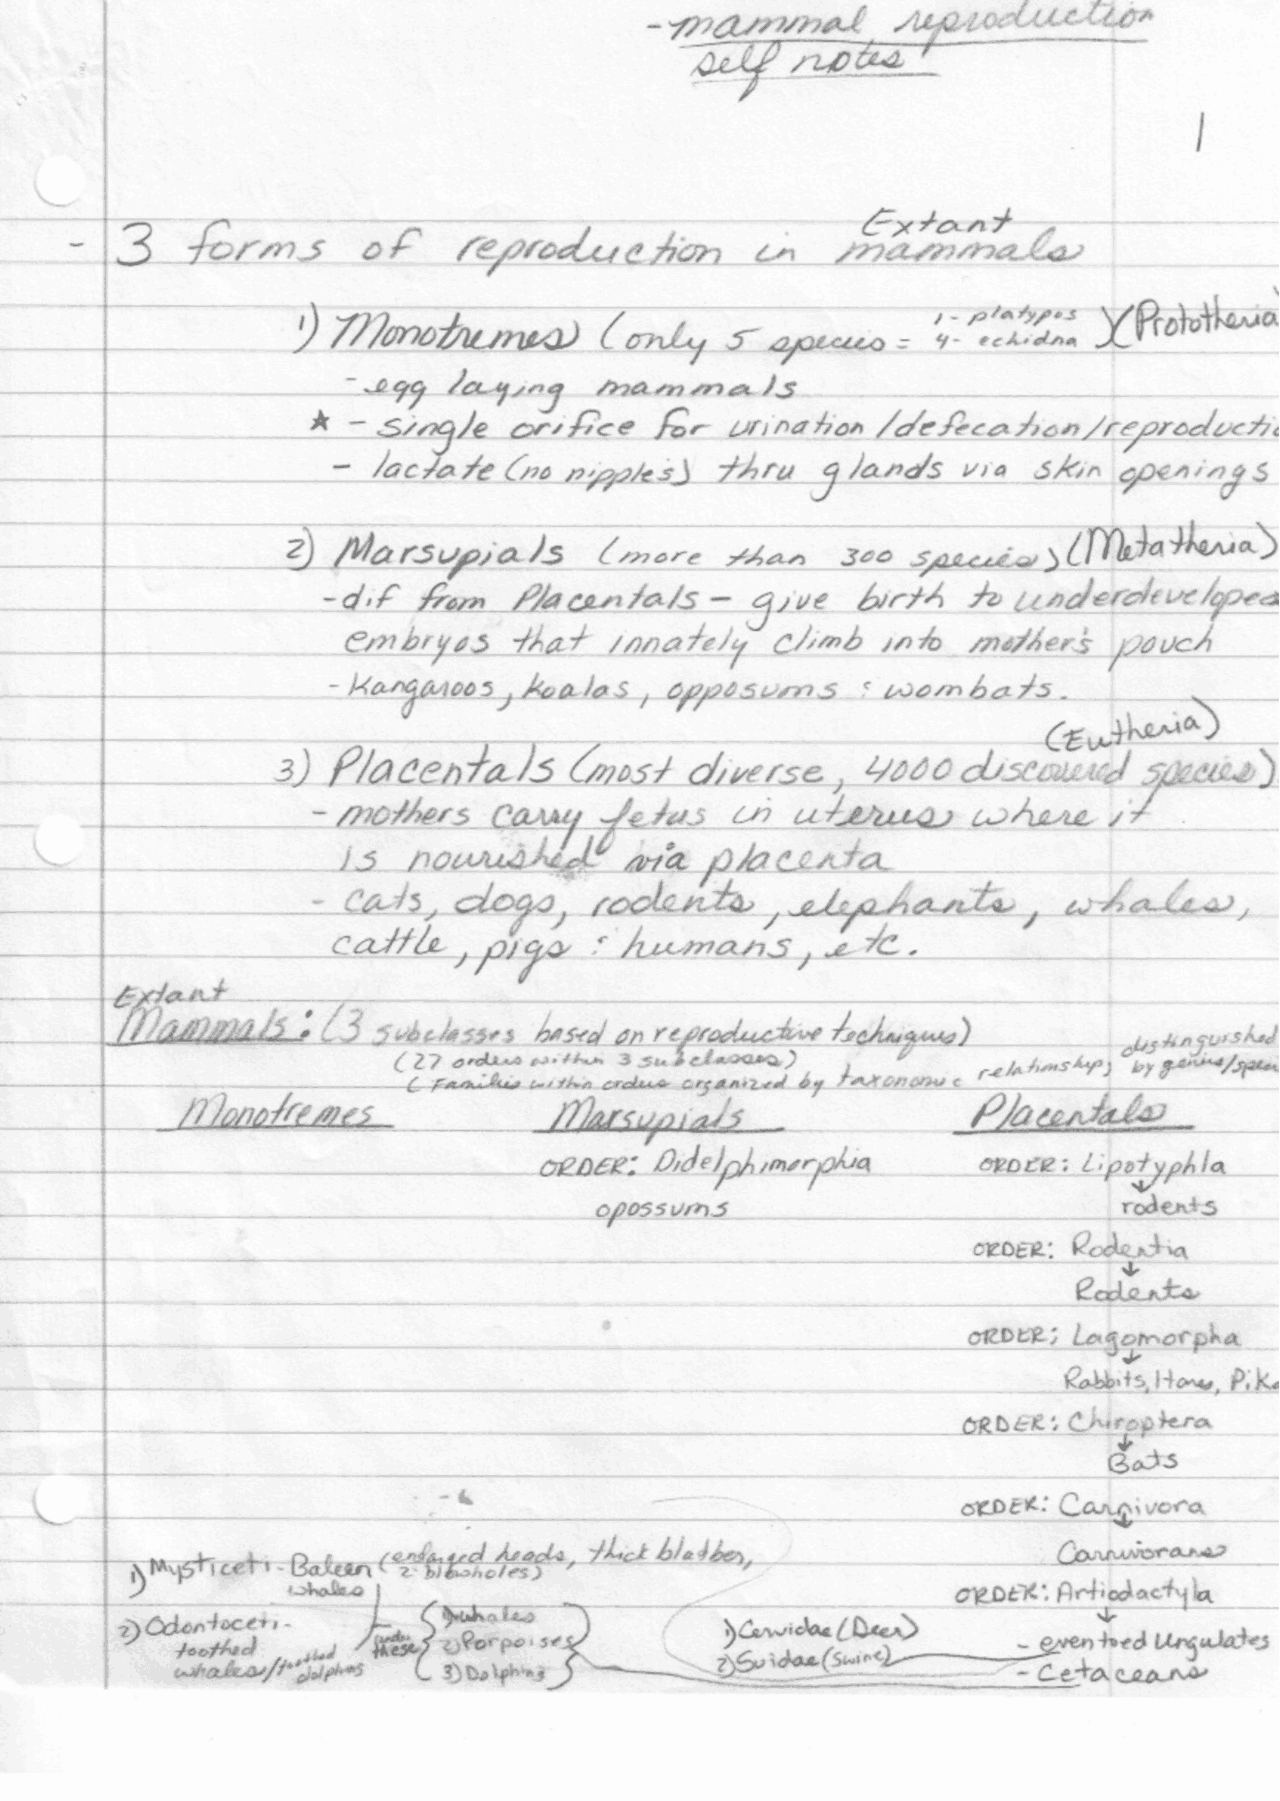 - mammal reproduction
self notes
1
- 3 forms of reproduction in Extant mammals
1) Monotremes (only 5 species = 1- platypos 4- echidna) (Prototheria
- egg laying mammals
★ - single orifice for urination/defecation/reproductio
- lactate (no nipples) thru glands via skin openings
2) Marsupials (more than 300 species) (Metatheria)
- dif from Placentals - give birth to underdeveloped
embryos that innately climb into mother's pouch
- Kangaroos, koalas, opposums : wombats.
(Eutheria)
3) Placentals (most diverse, 4000 discovered species)
- mothers carry fetus in uterus where it
is nourished via placenta
- cats, dogs, rodents, elephants, whales,
cattle, pigs : humans, etc.
Extant
Mammals: (3 subclasses based on reproductive techniques)
(27 orders within 3 subclasses)
(Families within orders organized by taxonomic relationship; distinguished by genus/speci
Monotremes Marsupials Placentals
ORDER: Didelphimorphia ORDER: Lipotyphla
opossums rodents
ORDER: Rodentia
Rodents
ORDER: Lagomorpha
Rabbits, Hares, Pika
ORDER: Chiroptera
Bats
ORDER: Carnivora
Carnivorans
ORDER: Artiodactyla
- even toed Ungulates
- Cetaceans
1) Mysticeti - Baleen whales (enlarged heads, thick blubber, 2 blowholes)
2) Odontoceti - toothed whales/toothed dolphins
under these
1) whales
2) Porpoises
3) Dolphins
1) Cervidae (Deer)
2) Suidae (Swine)